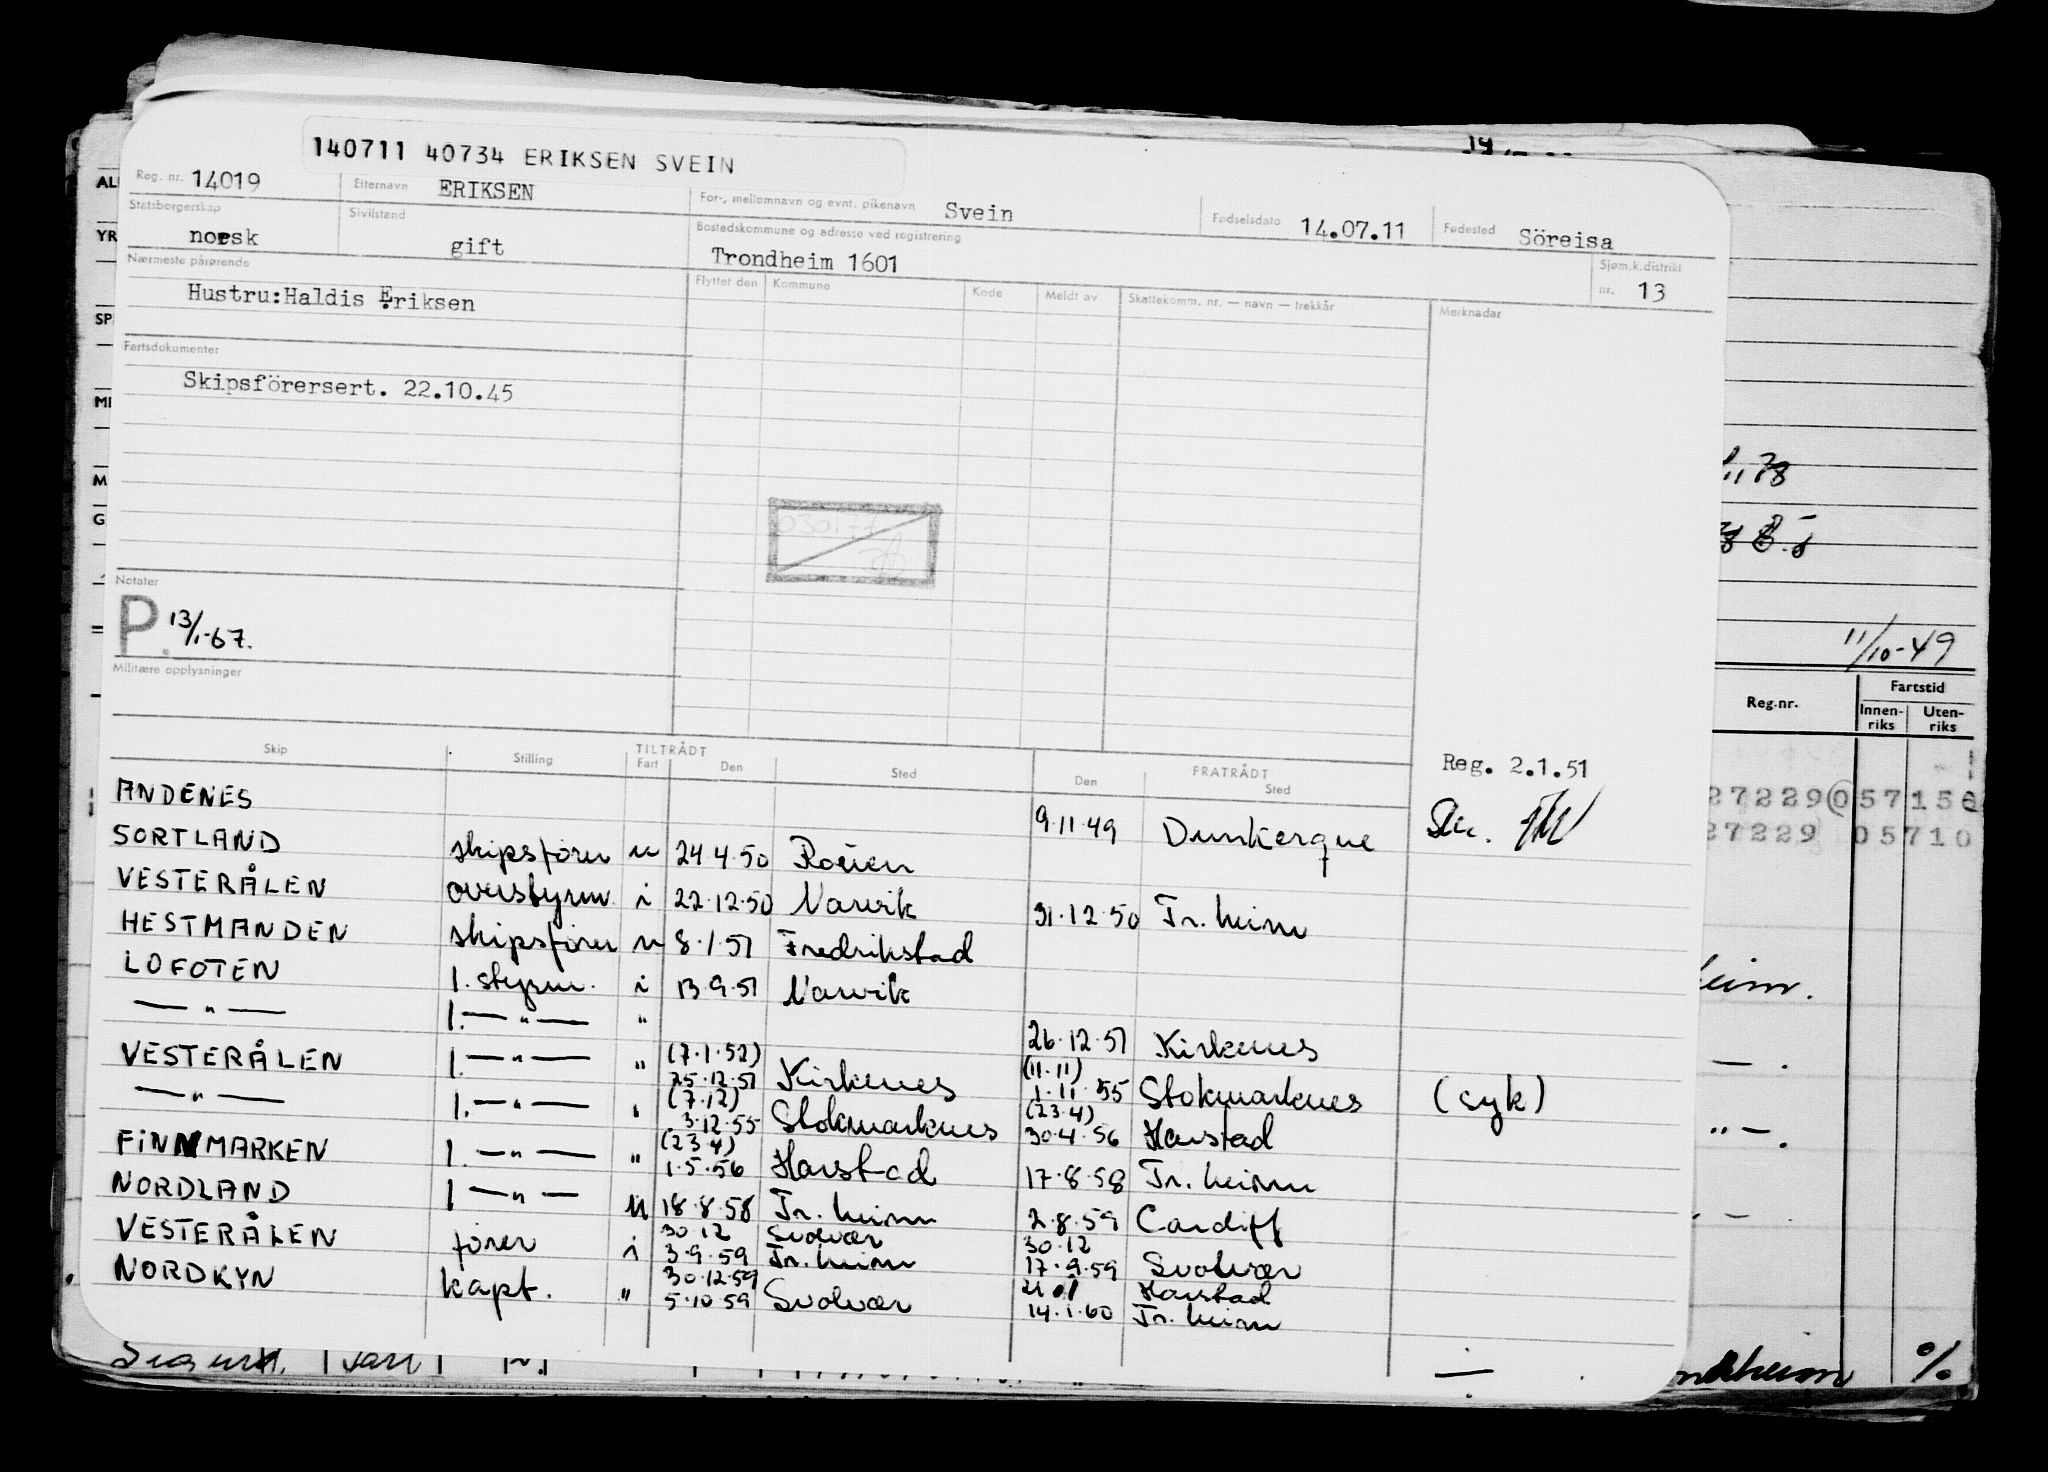 140711 40734 ERIKSEN SVEIN
Reg. nr. 14019 Etternavn ERIKSEN For-, mellomnavn og evnt. pikenavn Svein Fødselsdato 14.07.11 Fødested Söreisa
Statsborgerskap norsk Sivilstand gift Bostedskommune og adresse ved registrering Trondheim 1601 Sjøm.k.distrikt nr. 13
Nærmeste pårørende Flyttet den Kommune Kode Meldt av Skattekomm. nr. — navn — trekkår Merknader
Hustru:Haldis Eriksen
Fartsdokumenter
Skipsförersert. 22.10.45
030177
Notater
P. 13/1-67.
Militære opplysninger
TILTRÅDT FRATRÅDT
Skip Stilling Fart Den Sted Den Sted
Reg. 2.1.51
ANDENES 9.11.49 Dunkerque
SORTLAND skipsfører u 24.4.50 Roüen
VESTERÅLEN overstyrm. i 22.12.50 Narvik 31.12.50 Tr.heim
HESTMANDEN skipsfører u 8.1.51 Fredrikstad
LOFOTEN 1. styrm. i 13.9.51 Narvik
— " — 1. — " — " 26.12.51 Kirkenes
VESTERÅLEN 1. — " — " (7.1.52) 25.12.51 Kirkenes (11.11) 1.11.55 Stokmarknes (syk)
— " — 1. — " — " (7.12) 3.12.55 Stokmarknes (23.4) 30.4.56 Harstad
FINNMARKEN 1. — " — " (23.4) 1.5.56 Harstad 17.8.58 Tr.heim
NORDLAND 1 — " — u 18.8.58 Tr.heim 2.8.59 Cardiff
VESTERÅLEN fører i 30.12 Svolvær 3.9.59 Tr.heim 30.12 17.9.59 Svolvær
NORDKYN kapt. " 30.12.59 5.10.59 Svolvær Harstad 14.1.60 Tr.heim
11/10-49
Reg.nr. Fartstid
Innen-riks Uten-riks
27229 057156
27229 05710
heim.
ndheim %